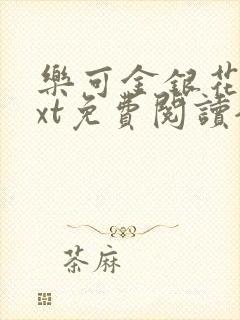 樂可金銀花
xt免費閱讀
茶麻